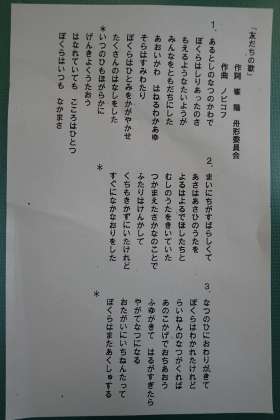 『友だちの歌』
作詞 峯陽 舟形委員会
作曲 ノビコフ
1.
あるとしのなつのかわで
ぼくらはしりあったのさ
もえるようなたいようが
みんなをともだちにした
あおいかわ はねるわかあゆ
そらはすみわたり
ぼくらはひとみをかがやかせ
たくさんのはなしをした
*いつのひもほがらかに
げんきよくうたおう
はなれていても こころはひとつ
ぼくらはいつも なかまさ
2.
まいにちがすばらしくて
あさはあさひのうたを
よるはよるでほしたちと
むしのうたをきいていた
つかまえたさかなのことで
ふたりはけんかして
くちもきかずにいたけれど
すぐになかなおりをした
*
3
なつのひにおわりがきて
ぼくらはわかれたけれど
らいねんのなつがくれば
あのこかげでおちあおう
ふゆがきて はるがすぎたら
やがてなつになる
おたがいにいちねんたって
ぼくらはまたあくしゅする
*